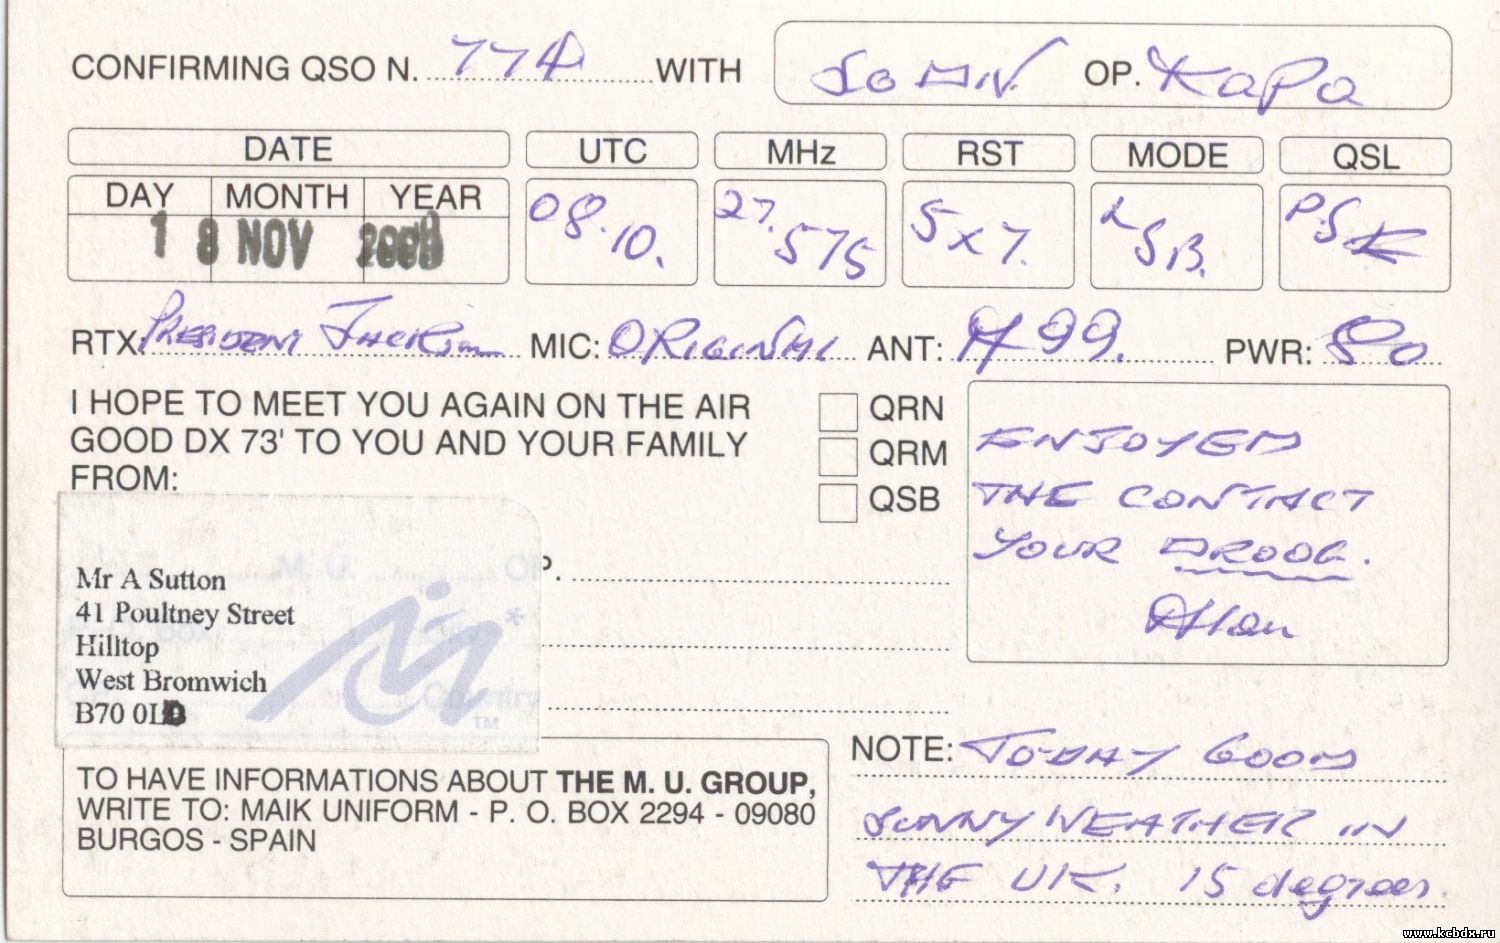 CONFIRMING QSO N. 774 WITH 50 DIV. OP. KAPA
DATE UTC MHz RST MODE QSL
DAY MONTH YEAR
18 NOV 08.10. 27.575 5x7. LSB. P.SE
RTX: PRESIDENT JACKSON MIC: ORIGINAL ANT: A99. PWR: 80
I HOPE TO MEET YOU AGAIN ON THE AIR
GOOD DX 73' TO YOU AND YOUR FAMILY
FROM:
QRN
QRM
QSB
ENJOYED
THE CONTACT
YOUR DROOG.
Alan
Mr A Sutton
41 Poultney Street
Hilltop
West Bromwich
B70 0LD
TO HAVE INFORMATIONS ABOUT THE M. U. GROUP,
WRITE TO: MAIK UNIFORM - P. O. BOX 2294 - 09080
BURGOS - SPAIN
NOTE: TO-DAY GOOD
SUNNY WEATHER IN
THE UK. 15 degrees.
www.kcbdx.ru